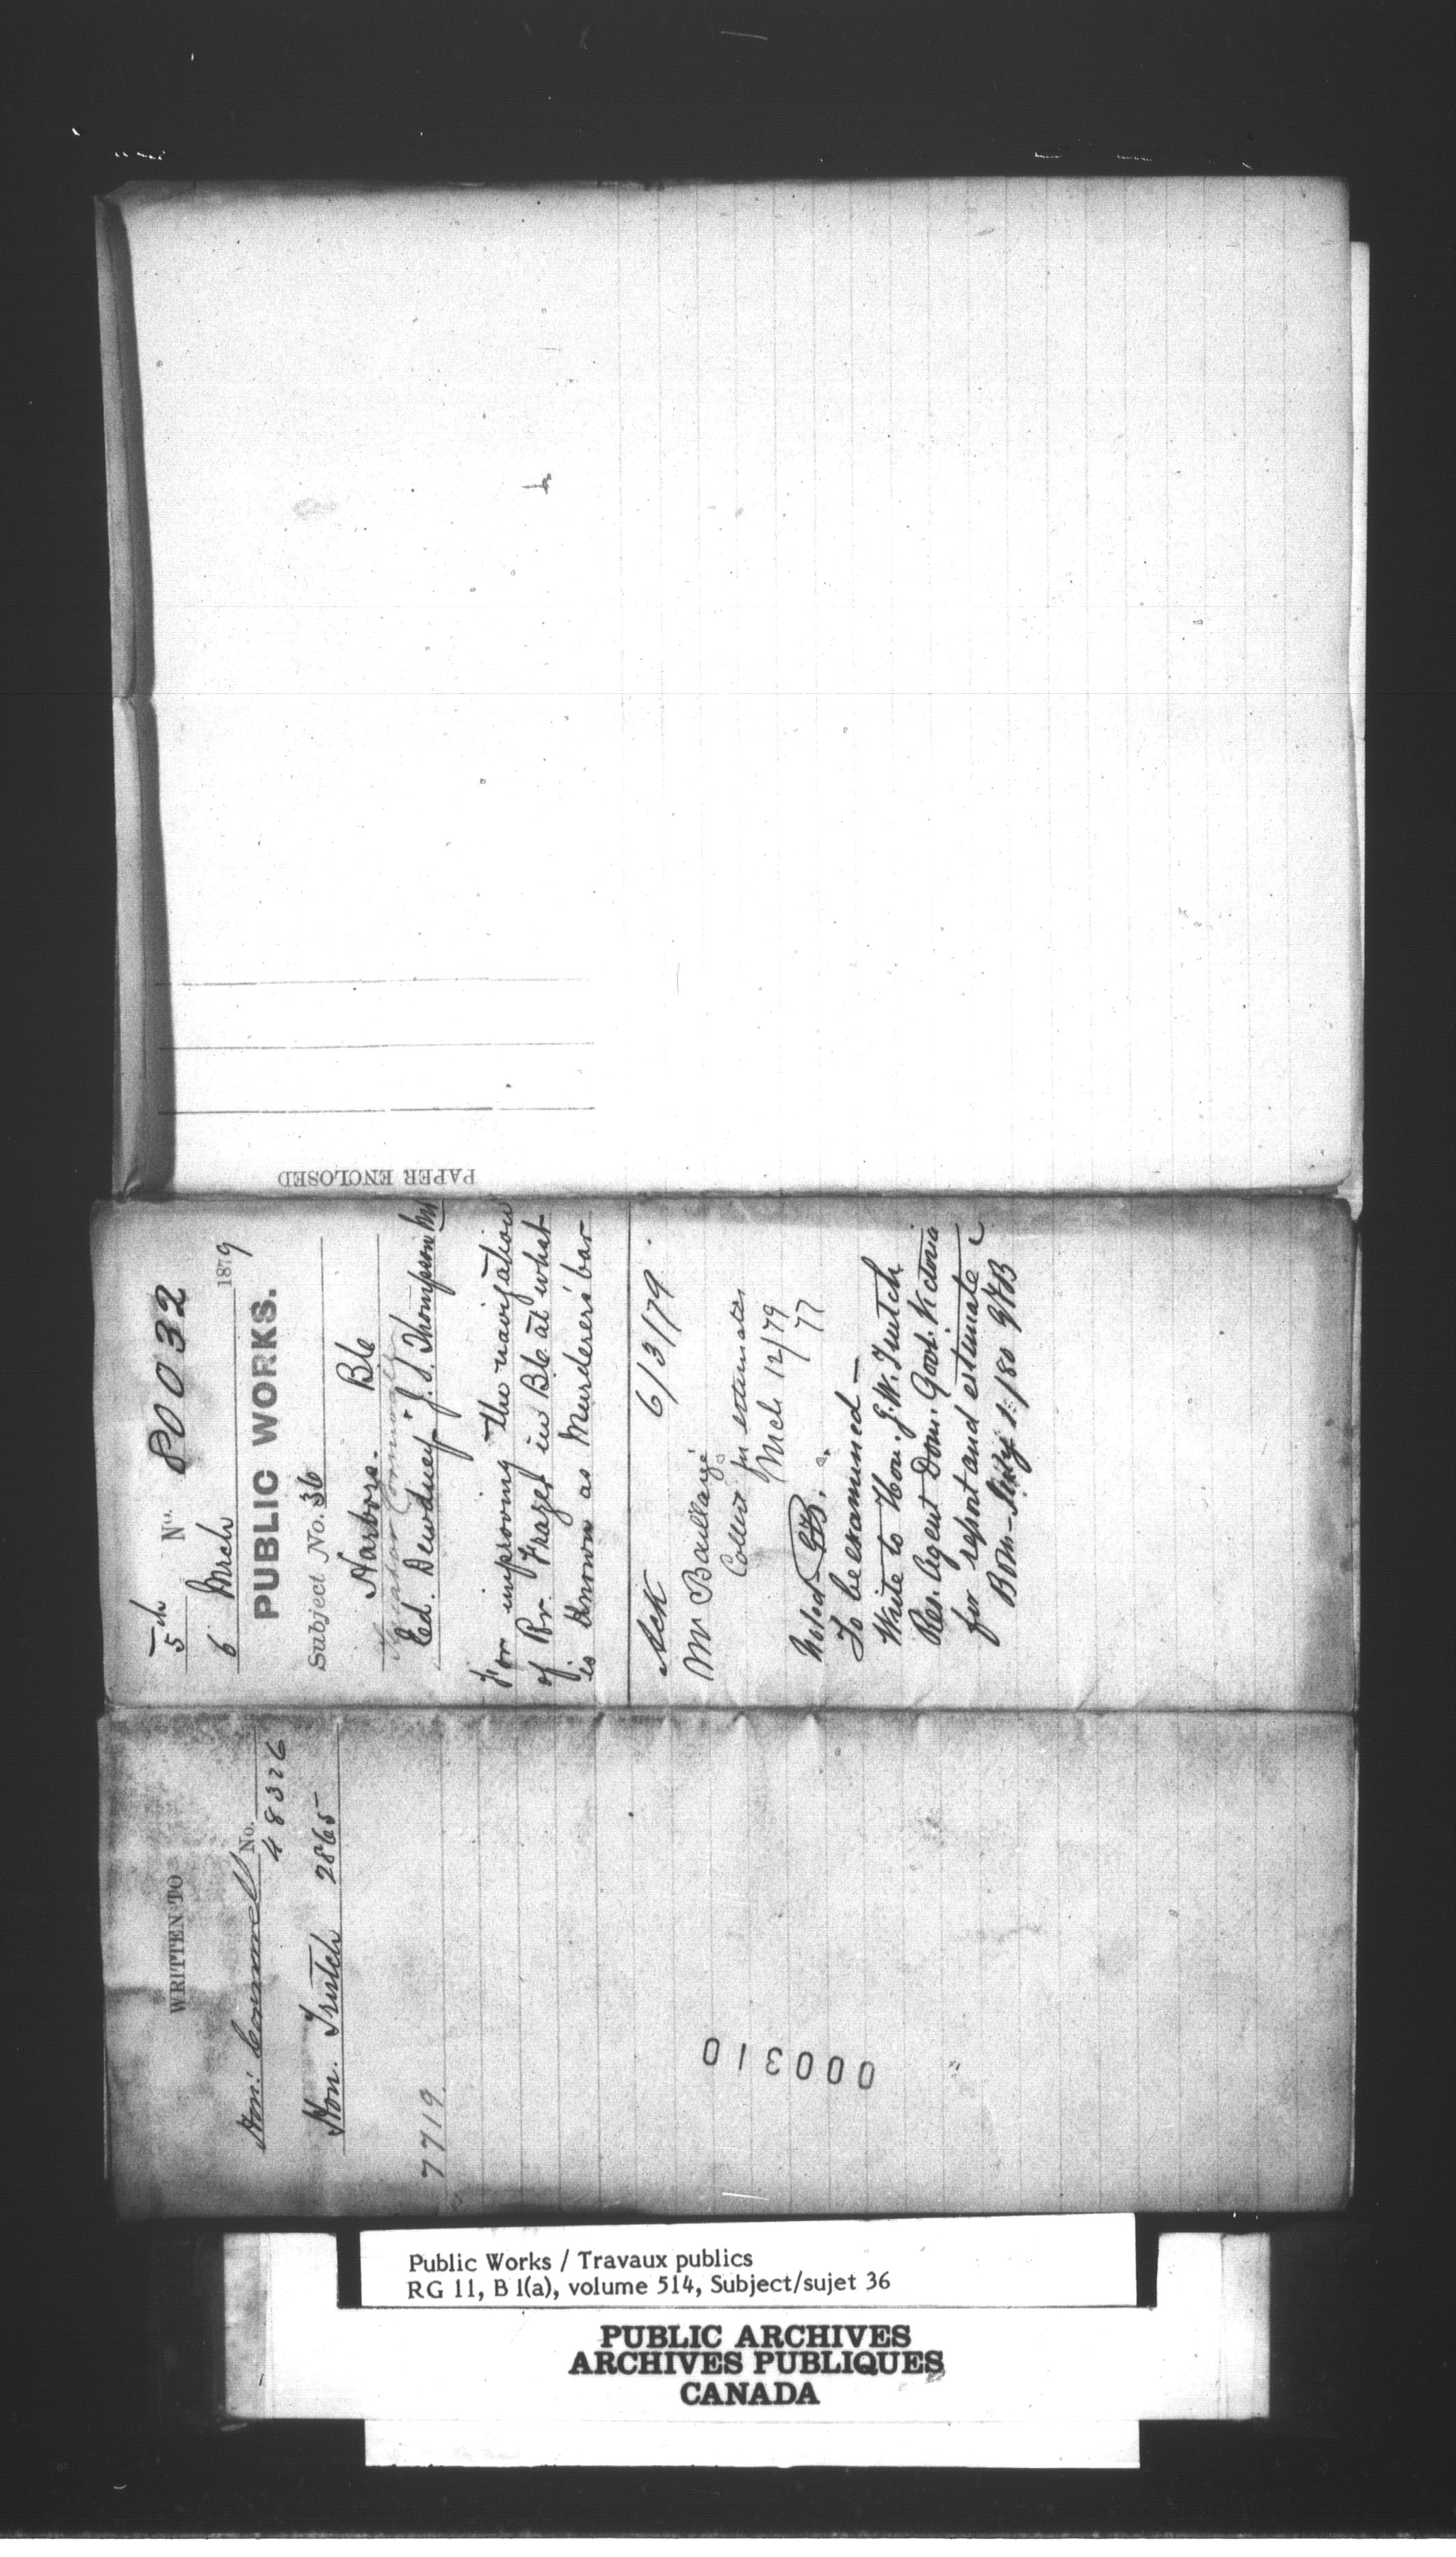 PAPER ENCLOSED
5th Nº 80032
6 Mrch 1879
PUBLIC WORKS.
Subject No. 36
Harbors. BC
Senator Cornwall
Ed. Dewdney & J. S. Thompson MP
For improving the navigation
of Rr. Frazer in BC at what
is known as Murderers' bar
Ack 6/3/79.
Mr Baillairgé
Collect for estimates
Mch 12/79
77
Noted GFB.
To be examined —
Write to Hon. J. W. Trutch
Res. Agent Dom. Govt. Victoria
for report and estimate
1/80 GFB
WRITTEN TO
No.
Hon: Cornwall 48326
Hon. Trutch 2865
7719
000310
Public Works / Travaux publics
RG 11, B 1(a), volume 514, Subject/sujet 36
PUBLIC ARCHIVES
ARCHIVES PUBLIQUES
CANADA